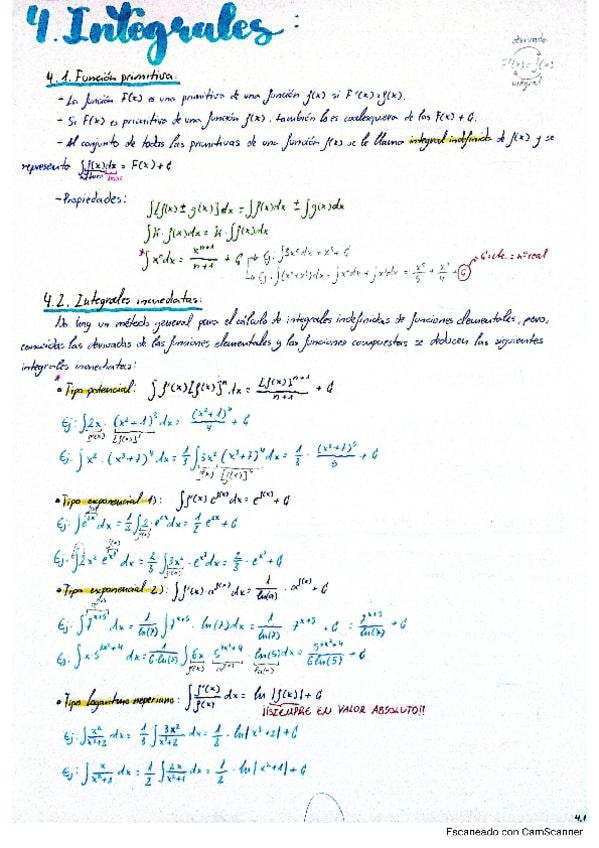 4. Integrales:
derivada
F'(x)=f(x)
integral
4.1. Función primitiva:
- La función F(x) es una primitiva de una función f(x) si F'(x)=f(x).
- Si F(x) es primitiva de una función f(x), también lo es cualesquiera de las F(x) + C.
- Al conjunto de todas las primitivas de una función f(x) se le llama integral indefinida de f(x) y se
representa ∫f(x)dx = F(x) + C
- Propiedades:
∫[f(x) ± g(x)]dx = ∫f(x)dx ± ∫g(x)dx
∫K·f(x)dx = K·∫f(x)dx
* ∫xⁿdx = xⁿ⁺¹/n+1 + C
C: cte. = nº real
4.2. Integrales inmediatas:
No hay un método general para el cálculo de integrales indefinidas de funciones elementales, pero,
conocidas las derivadas de las funciones elementales y las funciones compuestas se deducen las siguientes
integrales inmediatas:
* • Tipo potencial: ∫f'(x)[f(x)]ⁿ dx = [f(x)]ⁿ⁺¹/n+1 + C
Ej: ∫2x · (x²+1)³ dx = (x²+1)⁴/4 + C
f'(x) [f(x)]ⁿ
Ej: ∫x² · (x³+7)⁴ dx = 1/3 ∫3x² (x³+7)⁴ dx = 1/3 · (x³+7)⁵/5 + C
• Tipo exponencial 1): ∫f'(x) e^f(x) dx = e^f(x) + C
Ej: ∫e²ˣ dx = 1/2 ∫2 · e²ˣ dx = 1/2 e²ˣ + C
Ej: ∫2x² e^x³ dx = 2/3 ∫3x² · e^x³ dx = 2/3 · e^x³ + C
• Tipo exponencial 2): ∫f'(x) · a^f(x) dx = 1/ln(a) · a^f(x) + C
Ej: ∫7ˣ⁺⁵ dx = 1/ln(7) ∫7ˣ⁺⁵ · ln(7) dx = 1/ln(7) · 7ˣ⁺⁵ + C = 7ˣ⁺⁵/ln(7) + C
• Tipo logaritmo neperiano: ∫f'(x)/f(x) dx = ln |f(x)| + C
¡¡SIEMPRE EN VALOR ABSOLUTO!!
Ej: ∫x²/x³+2 dx = 1/3 ∫3x²/x³+2 dx = 1/3 · ln|x³+2| + C
Ej: ∫x/x²+1 dx = 1/2 ∫2x/x²+1 dx = 1/2 · ln|x²+1| + C
4.1
Escaneado con CamScanner